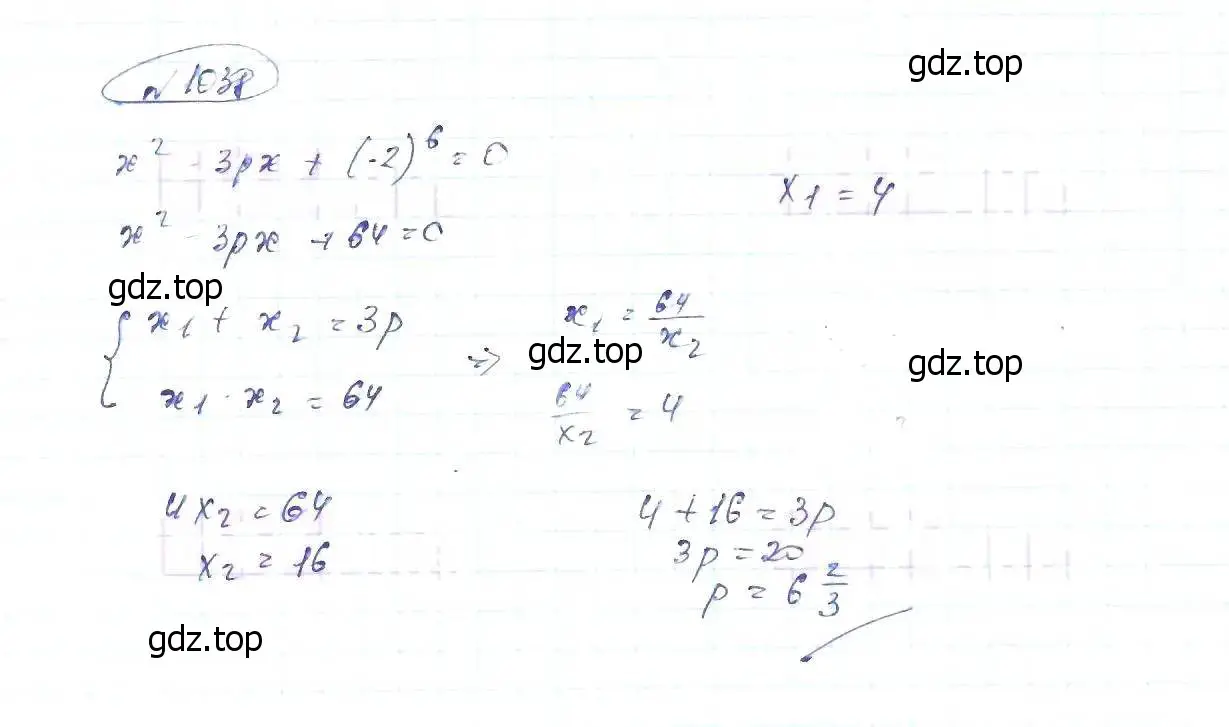 № 1038
gdz.top
x² - 3px + (-2)⁶ = 0
x₁ = 4
x² - 3px + 64 = 0
gdz.top
{ x₁ + x₂ = 3p
x₁ · x₂ = 64
=>
x₁ = 64/x₂
gdz.top
gdz.top
64/x₂ = 4
4x₂ = 64
x₂ = 16
4 + 16 = 3p
3p = 20
p = 6 2/3
gdz.top